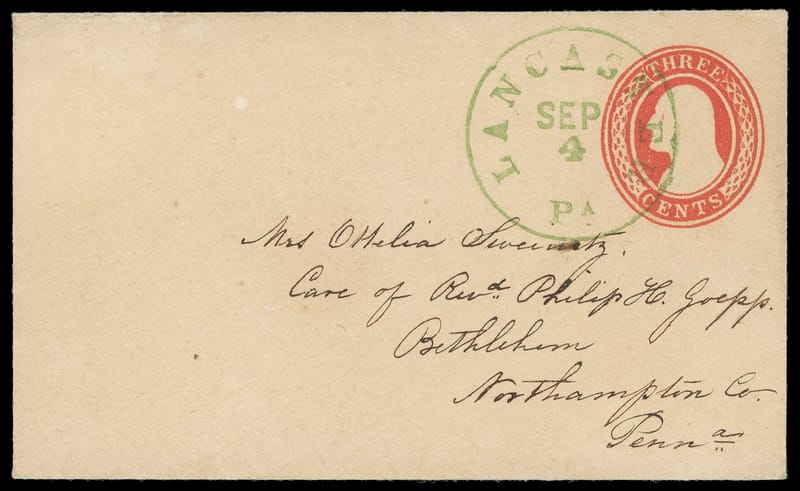 LANCASTER
SEP
4
PA
THREE
CENTS
Mrs Ottelia Sweinitz.
Care of Revd. Philip H. Goepp.
Bethlehem
Northampton Co.
Penna